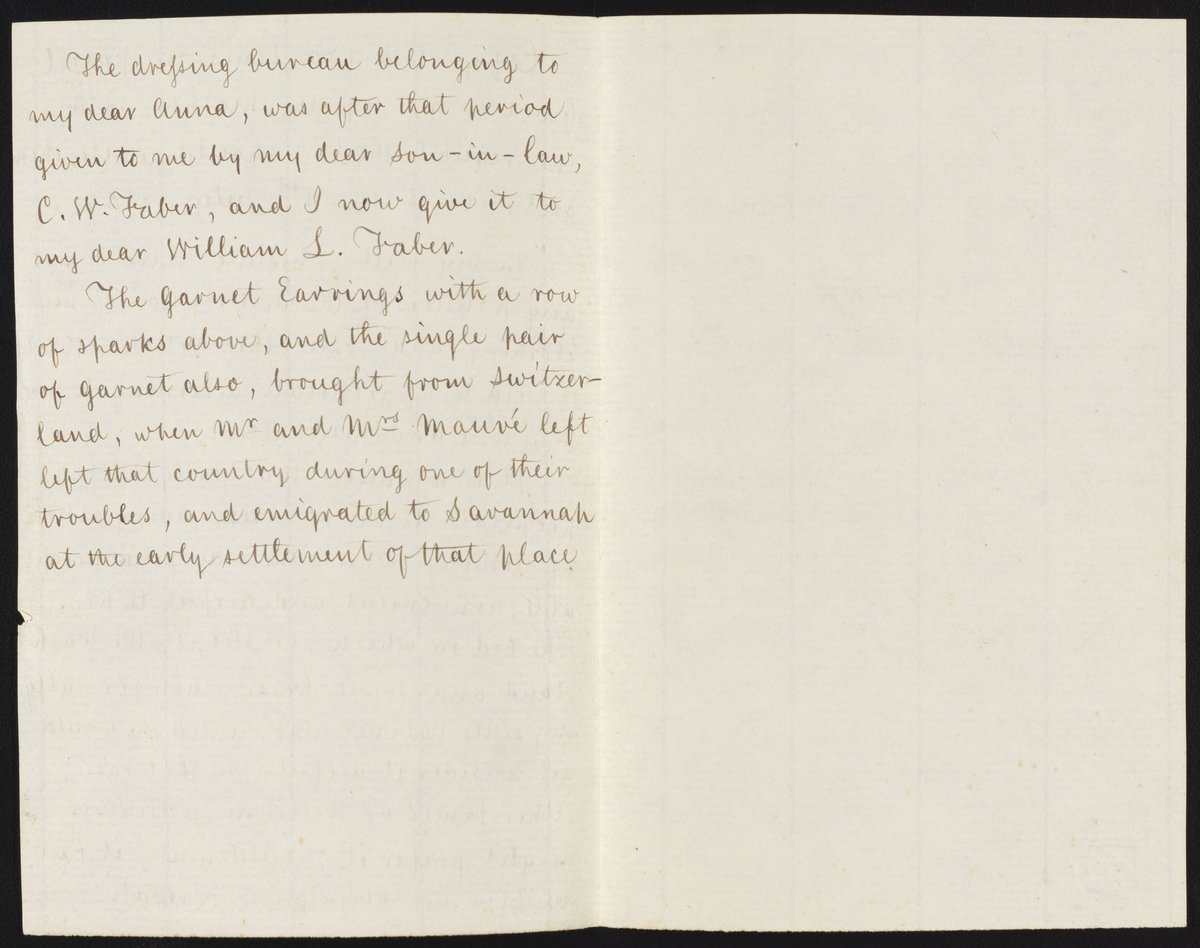 The dressing bureau belonging to
my dear Anna, was after that period
given to me by my dear son-in-law,
C. W. Faber, and I now give it to
my dear William L. Faber.
The garnet Earrings with a row
of sparks above, and the single pair
of garnet also, brought from Switzer-
land, when Mr and Mrs Mauvé left
left that country during one of their
troubles, and emigrated to Savannah
at the early settlement of that place.